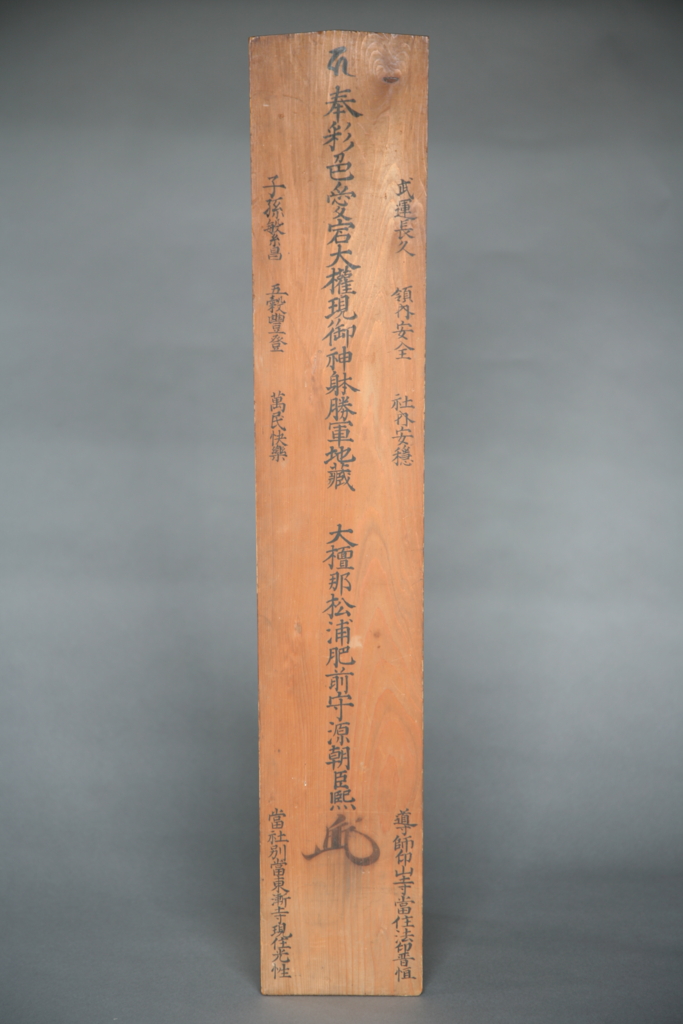 奉彩色愛宕大權現御神躰勝軍地藏　大檀那松浦肥前守源朝臣熈
武運長久　領内安全　社内安穩
導師印山寺當住法印普恒
子孫繁昌　五穀豐登　萬民快樂
當社別當東漸寺現住光性